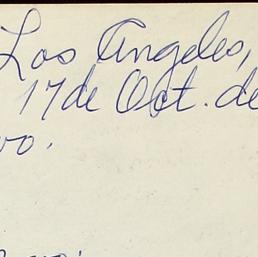 Los Angeles,
17 de Oct. de
vo.